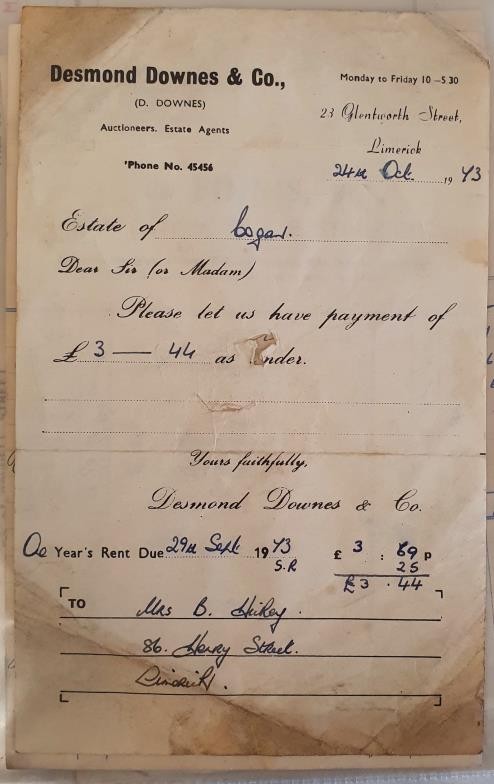 Desmond Downes & Co.,
(D. DOWNES)
Auctioneers. Estate Agents
'Phone No. 45456
Monday to Friday 10 -5 30
23 Glentworth Street,
Limerick
24th Oct. 19 73
Estate of Cogan.
Dear Sir (or Madam)
Please let us have payment of
£ 3 — 44 as under.
Yours faithfully,
Desmond Downes & Co.
One Year's Rent Due 29th Sept 1973 £ 3 : 69 p
S.R 25
£3 . 44
TO Mrs B. Hickey.
86. Henry Street.
Limerick.